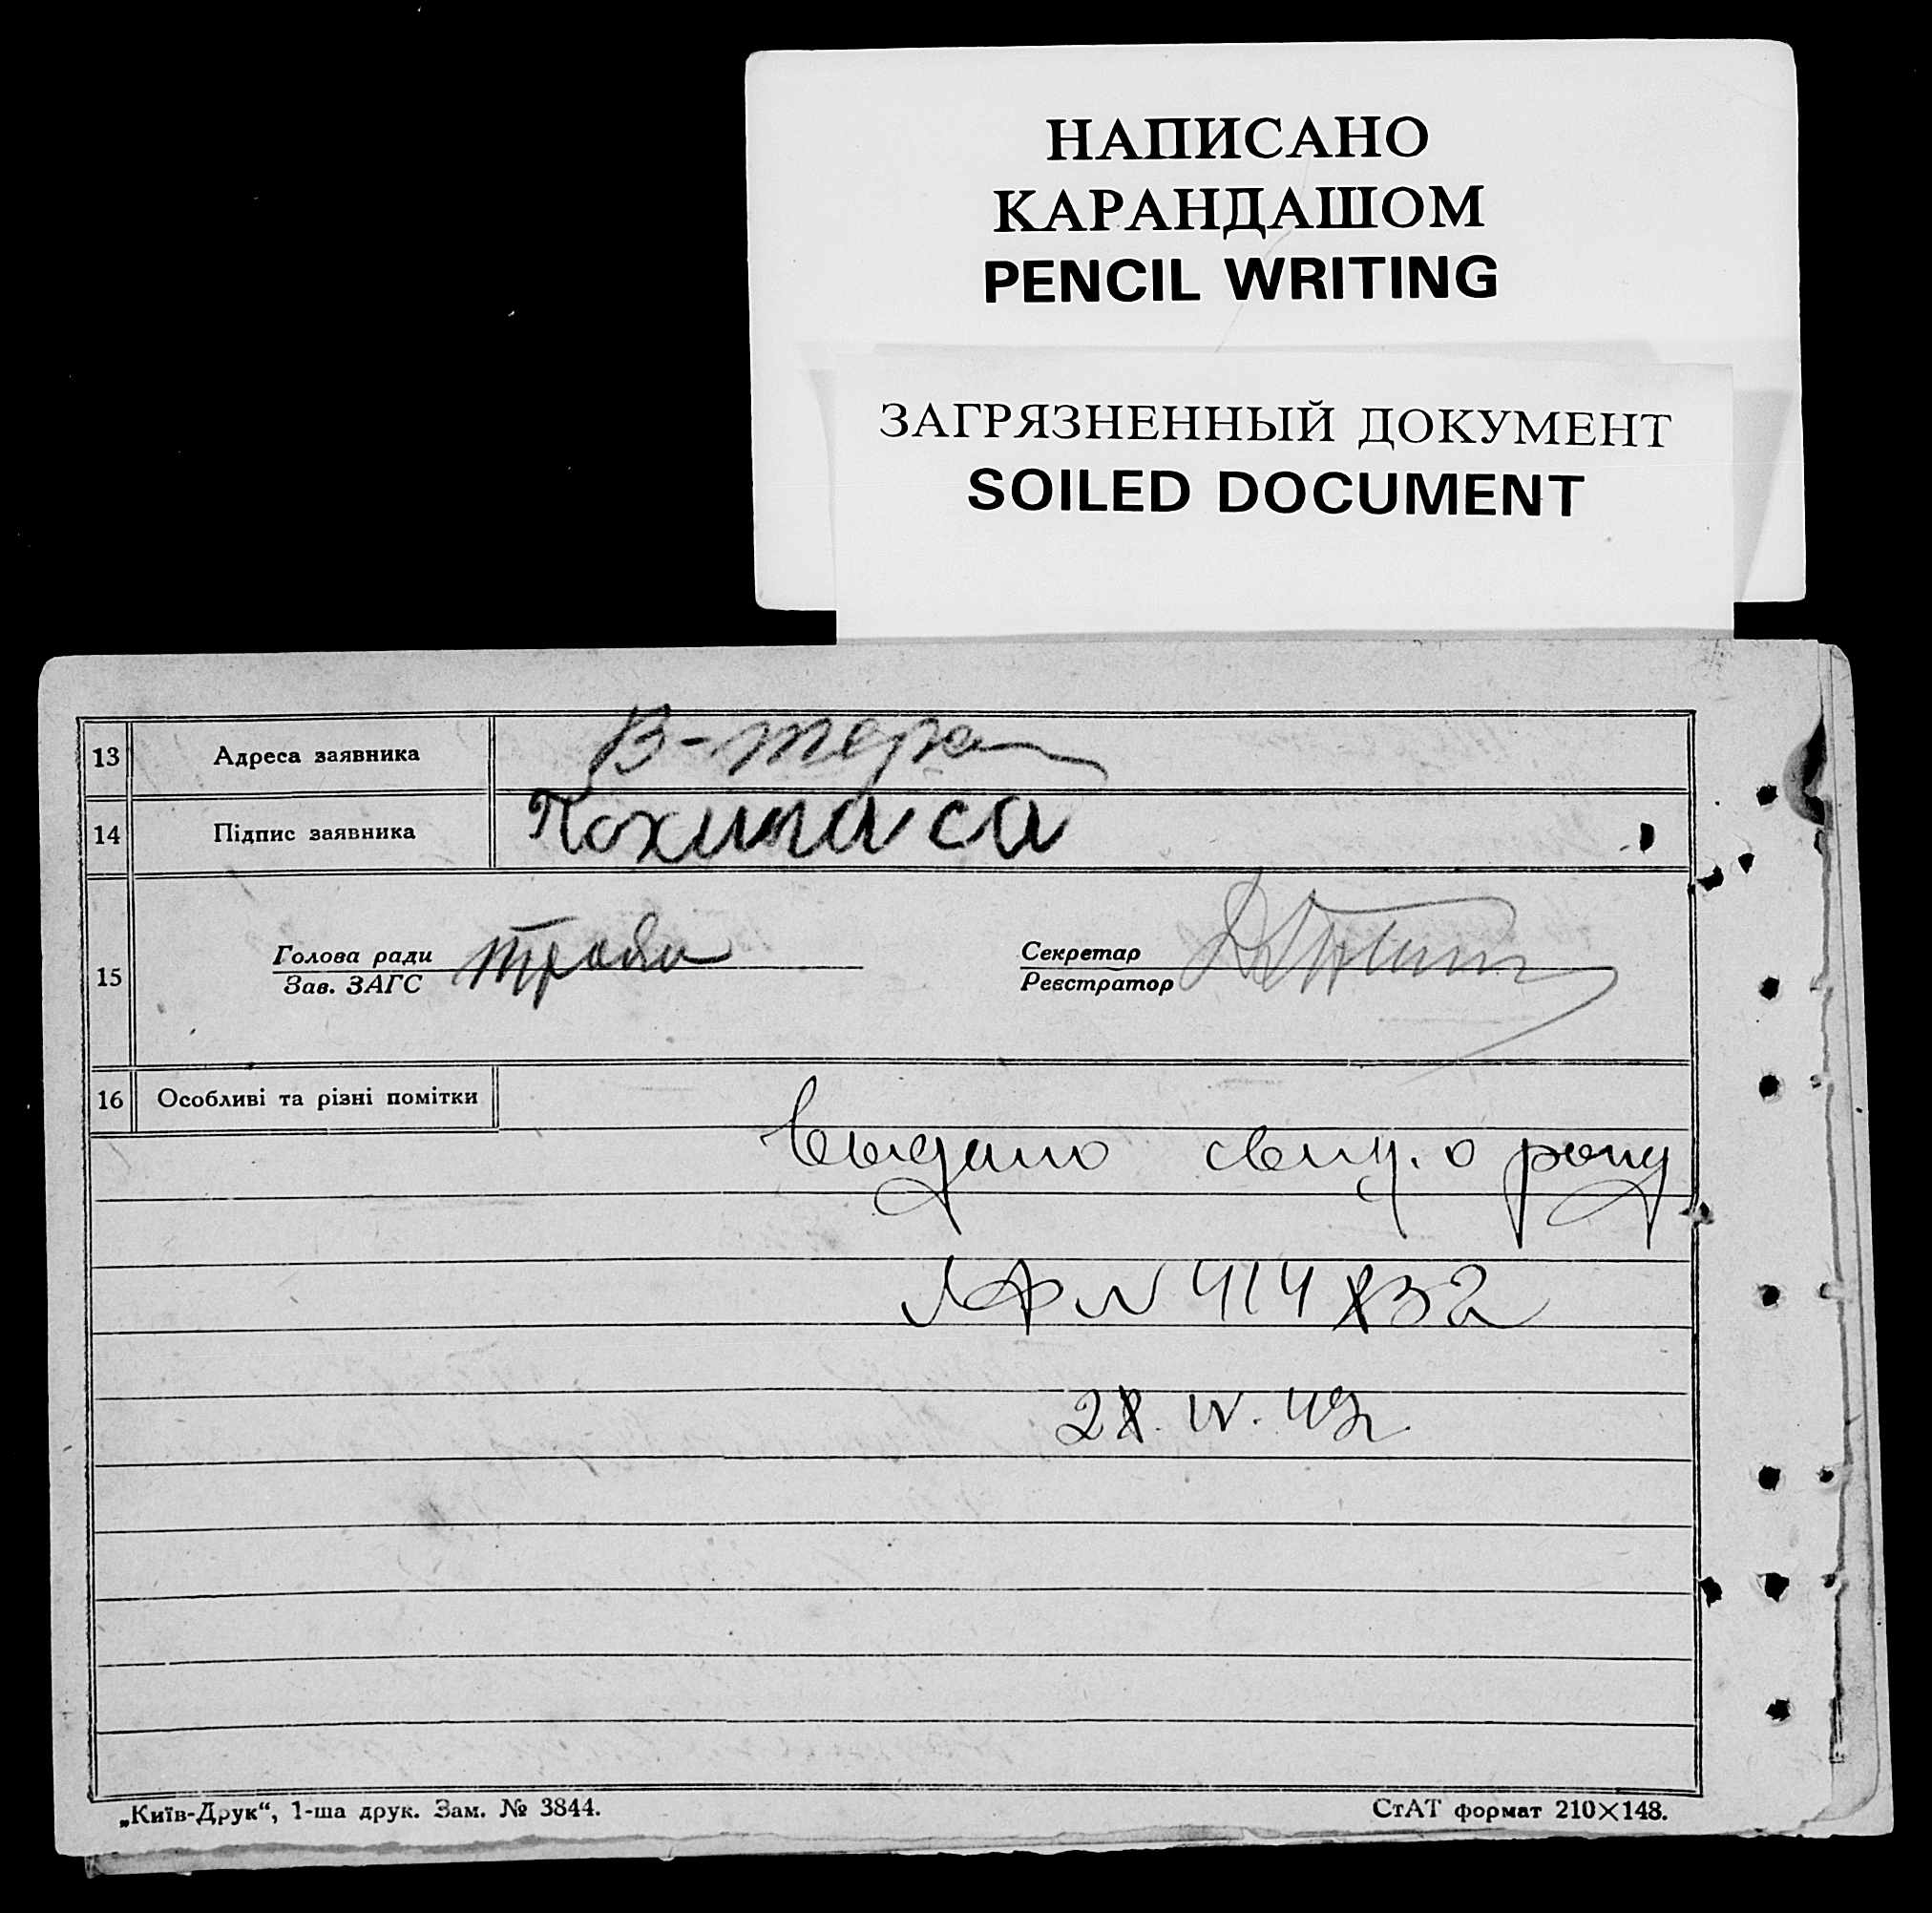 НАПИСАНО
КАРАНДАШОМ
PENCIL WRITING
ЗАГРЯЗНЕННЫЙ ДОКУМЕНТ
SOILED DOCUMENT
13 Адреса заявника В-тера
14 Підпис заявника
15 Голова ради Секретар
Зав. ЗАГС Реєстратор
16 Особливі та різні помітки
Выдано свид. о рожд
№ 414832
28. IV. 49г
„Київ-Друк“, 1-ша друк. Зам. № 3844. СтАТ формат 210×148.